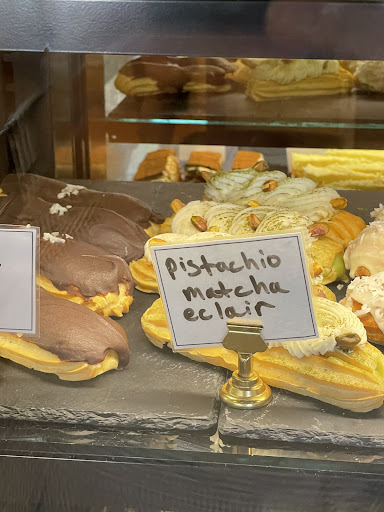 pistachio
matcha
eclair